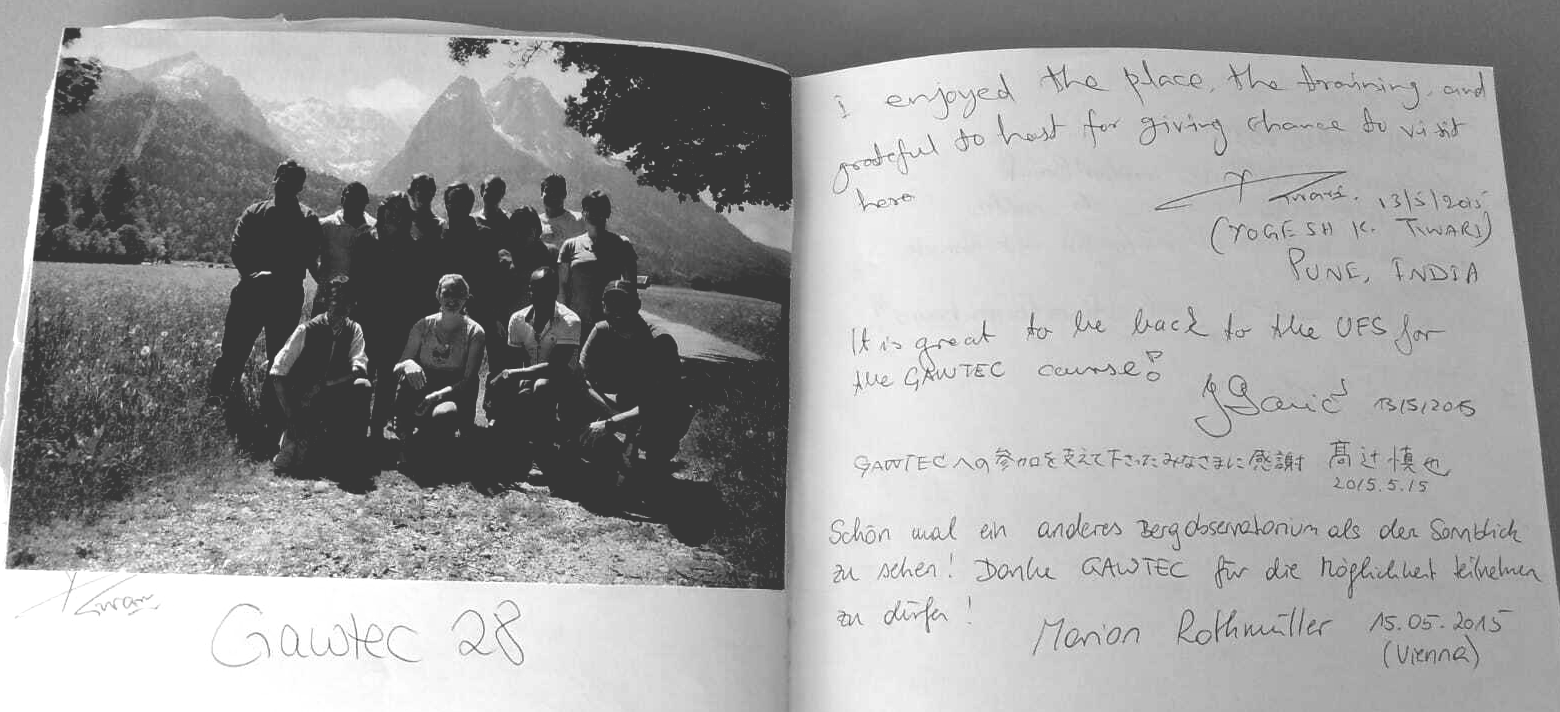 Tiwari
Gawtec 28
I enjoyed the place, the training, and
grateful to host for giving chance to visit
here
Tiwari. 13/5/2015
(YOGESH K. TIWARI)
PUNE, INDIA
It is great to be back to the UFS for
the GAWTEC course!
13/5/2015
GAWTECへの参加を支えて下さったみなさまに感謝 髙辻慎也
2015.5.15
Schön mal ein anderes Bergobservatorium als den Sonnblick
zu sehen! Danke GAWTEC für die Möglichkeit teilnehmen
zu dürfen!
Marion Rothmüller 15.05.2015
(Vienna)